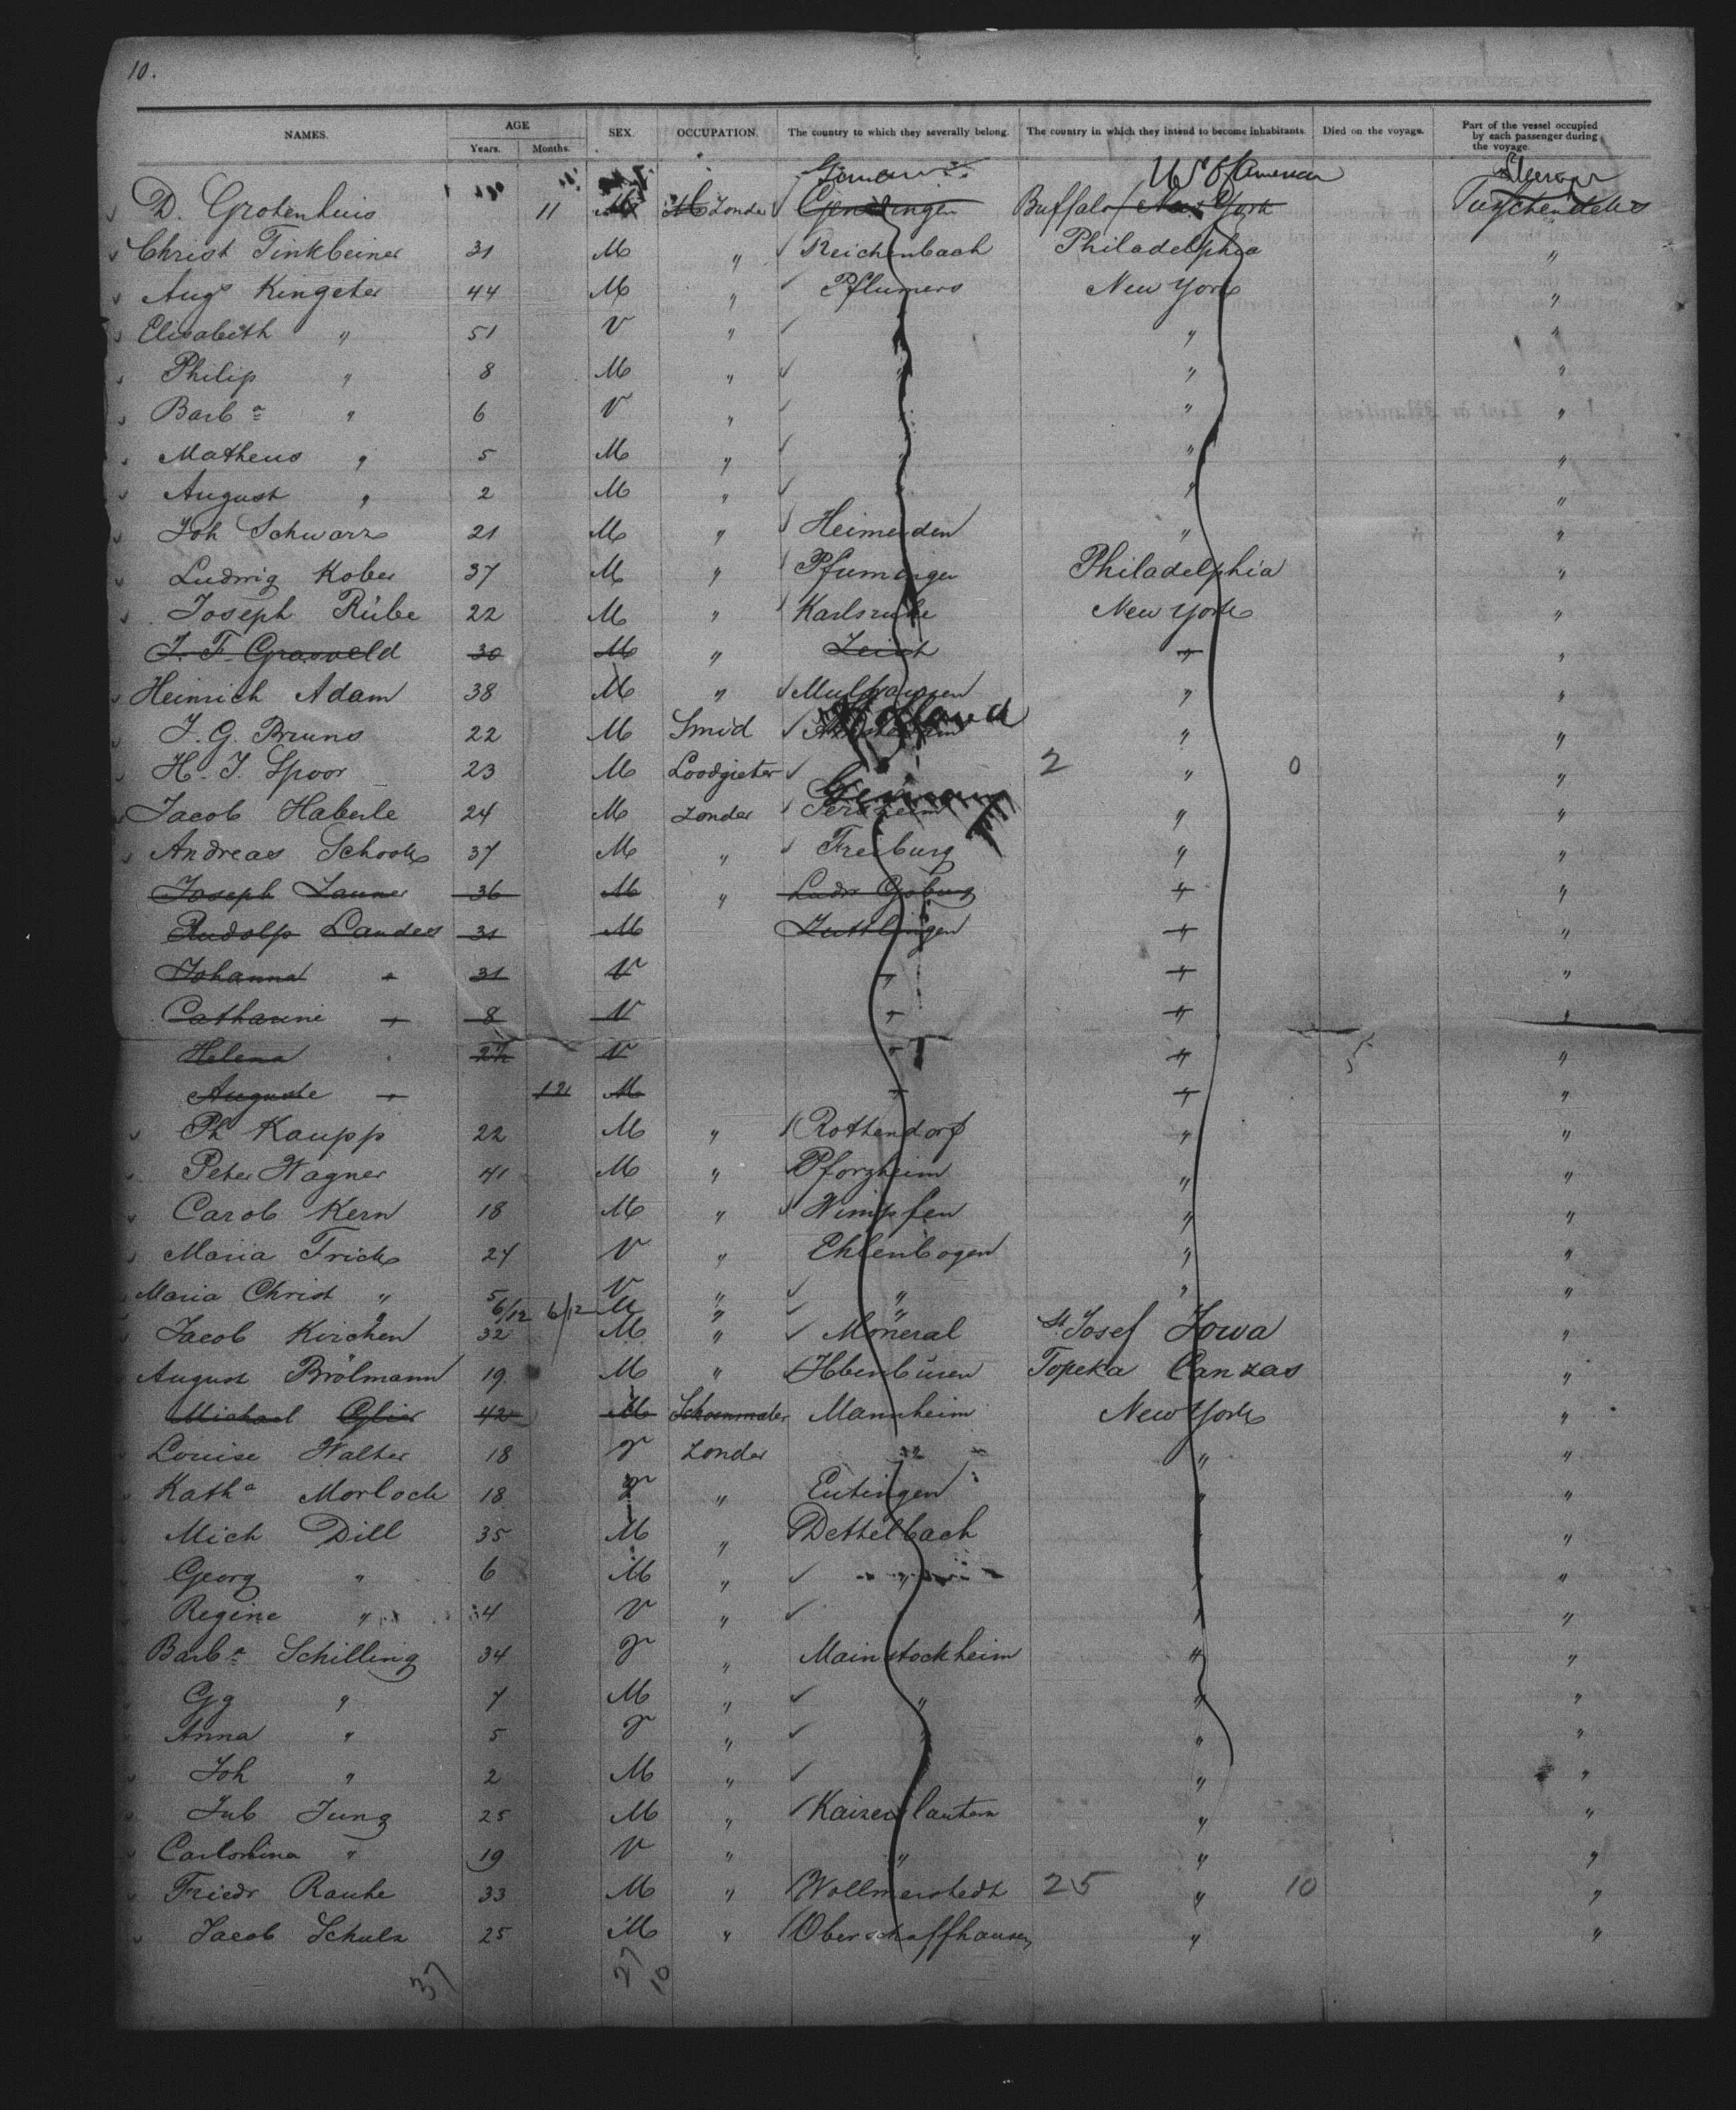 10.
NAMES. AGE SEX. OCCUPATION. The country to which they severally belong. The country in which they intend to become inhabitants. Died on the voyage. Part of the vessel occupied by each passenger during the voyage.
Years. Months.
Germany U S of America Steerage
D. Grotenhuis 11 M Zonder Gendringen Buffalo New York Tusschendeks
Christ Finkbeiner 31 M " Reichenbach Philadelphia "
Aug Kingeter 44 M " Pflumero New York "
Elisabeth " 51 V " " "
Philip " 8 M " " " "
Barba " 6 V " " "
Matheus " 5 M " " " "
August " 2 M " " "
Joh Schwarz 21 M " Heimerden " "
Ludwig Kober 37 M " Pfumingen Philadelphia "
Joseph Rübe 22 M " Karlsruhe New York "
J. F. Grasveld 30 M " Zeist " "
Heinrich Adam 38 M " Mulhausen " "
J. G. Bruns 22 M Smid Holland " "
H. J. Spoor 23 M Loodgieter 2 " 0 "
Germany
Jacob Haberle 24 M Zonder " "
Andreas Schook 37 M " Freiburg " "
Joseph Launer 36 M " " "
Rudolf Landes 31 M Tuttlingen " "
Johanna " 31 V " " "
Catharine " 8 V " " "
Helena V " " "
Auguste " 12 M " " "
Ph Kaupp 22 M " Rothendorf " "
Peter Wagner 41 M " Pforzheim " "
Carob Kern 18 M " Wimpfen " "
Maria Frick 24 V " Ehlenbogen " "
Maria Christ " 5 V " " " "
" 6/12 6/12 M " "
Jacob Kirchen 32 M " Moneral St. Josef Iowa "
August Brölmann 19 M " Ibbenbüren Topeka Canzas "
Michael Glier 42 M Schoenmaker Mannheim New York "
Louise Walter 18 V Zonder " " "
Katha Morlock 18 V " Eutingen " "
Mich Dill 35 M " Dettelbach "
Georg " 6 M " " "
Regine " 4 V " "
Barba Schilling 34 V " Mainstockheim " "
Gg " 7 M " " " "
Anna " 5 V " " " "
Joh " 2 M " " "
Jub Jung 25 M " Kaizerslautern " "
Carlorina " 19 V " " " "
Friedr Rauhe 33 M " Wollmerstedt 25 " 10 "
Jacob Schulz 25 M " Oberschaffhausen " "
37 27 10